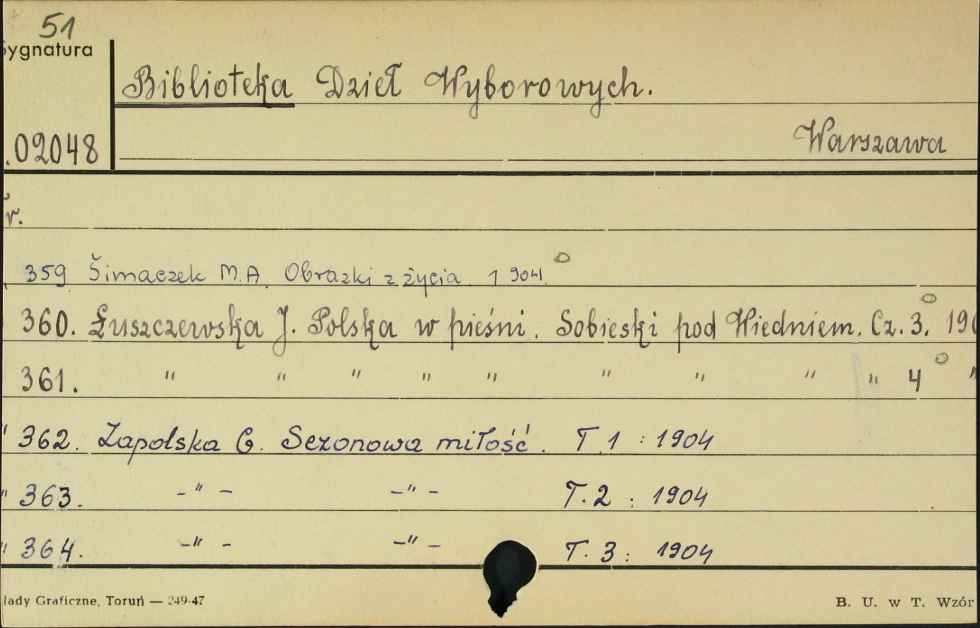 51
Sygnatura
Biblioteka Dzieł Wyborowych.
Warszawa
.02048
359 Šimaczek M.A. Obrazki z życia. 1904.
360. Łuszczewska J. Polska w pieśni. Sobieski pod Wiedniem. Cz. 3. 190
361. " " " " " " " " " 4 "
" 362. Zapolska G. Sezonowa miłość. T. 1 : 1904
" 363. -"- -"- T. 2 : 1904
" 364. -"- -"- T. 3 : 1904
łady Graficzne, Toruń — 249-47
B. U. w T. Wzór